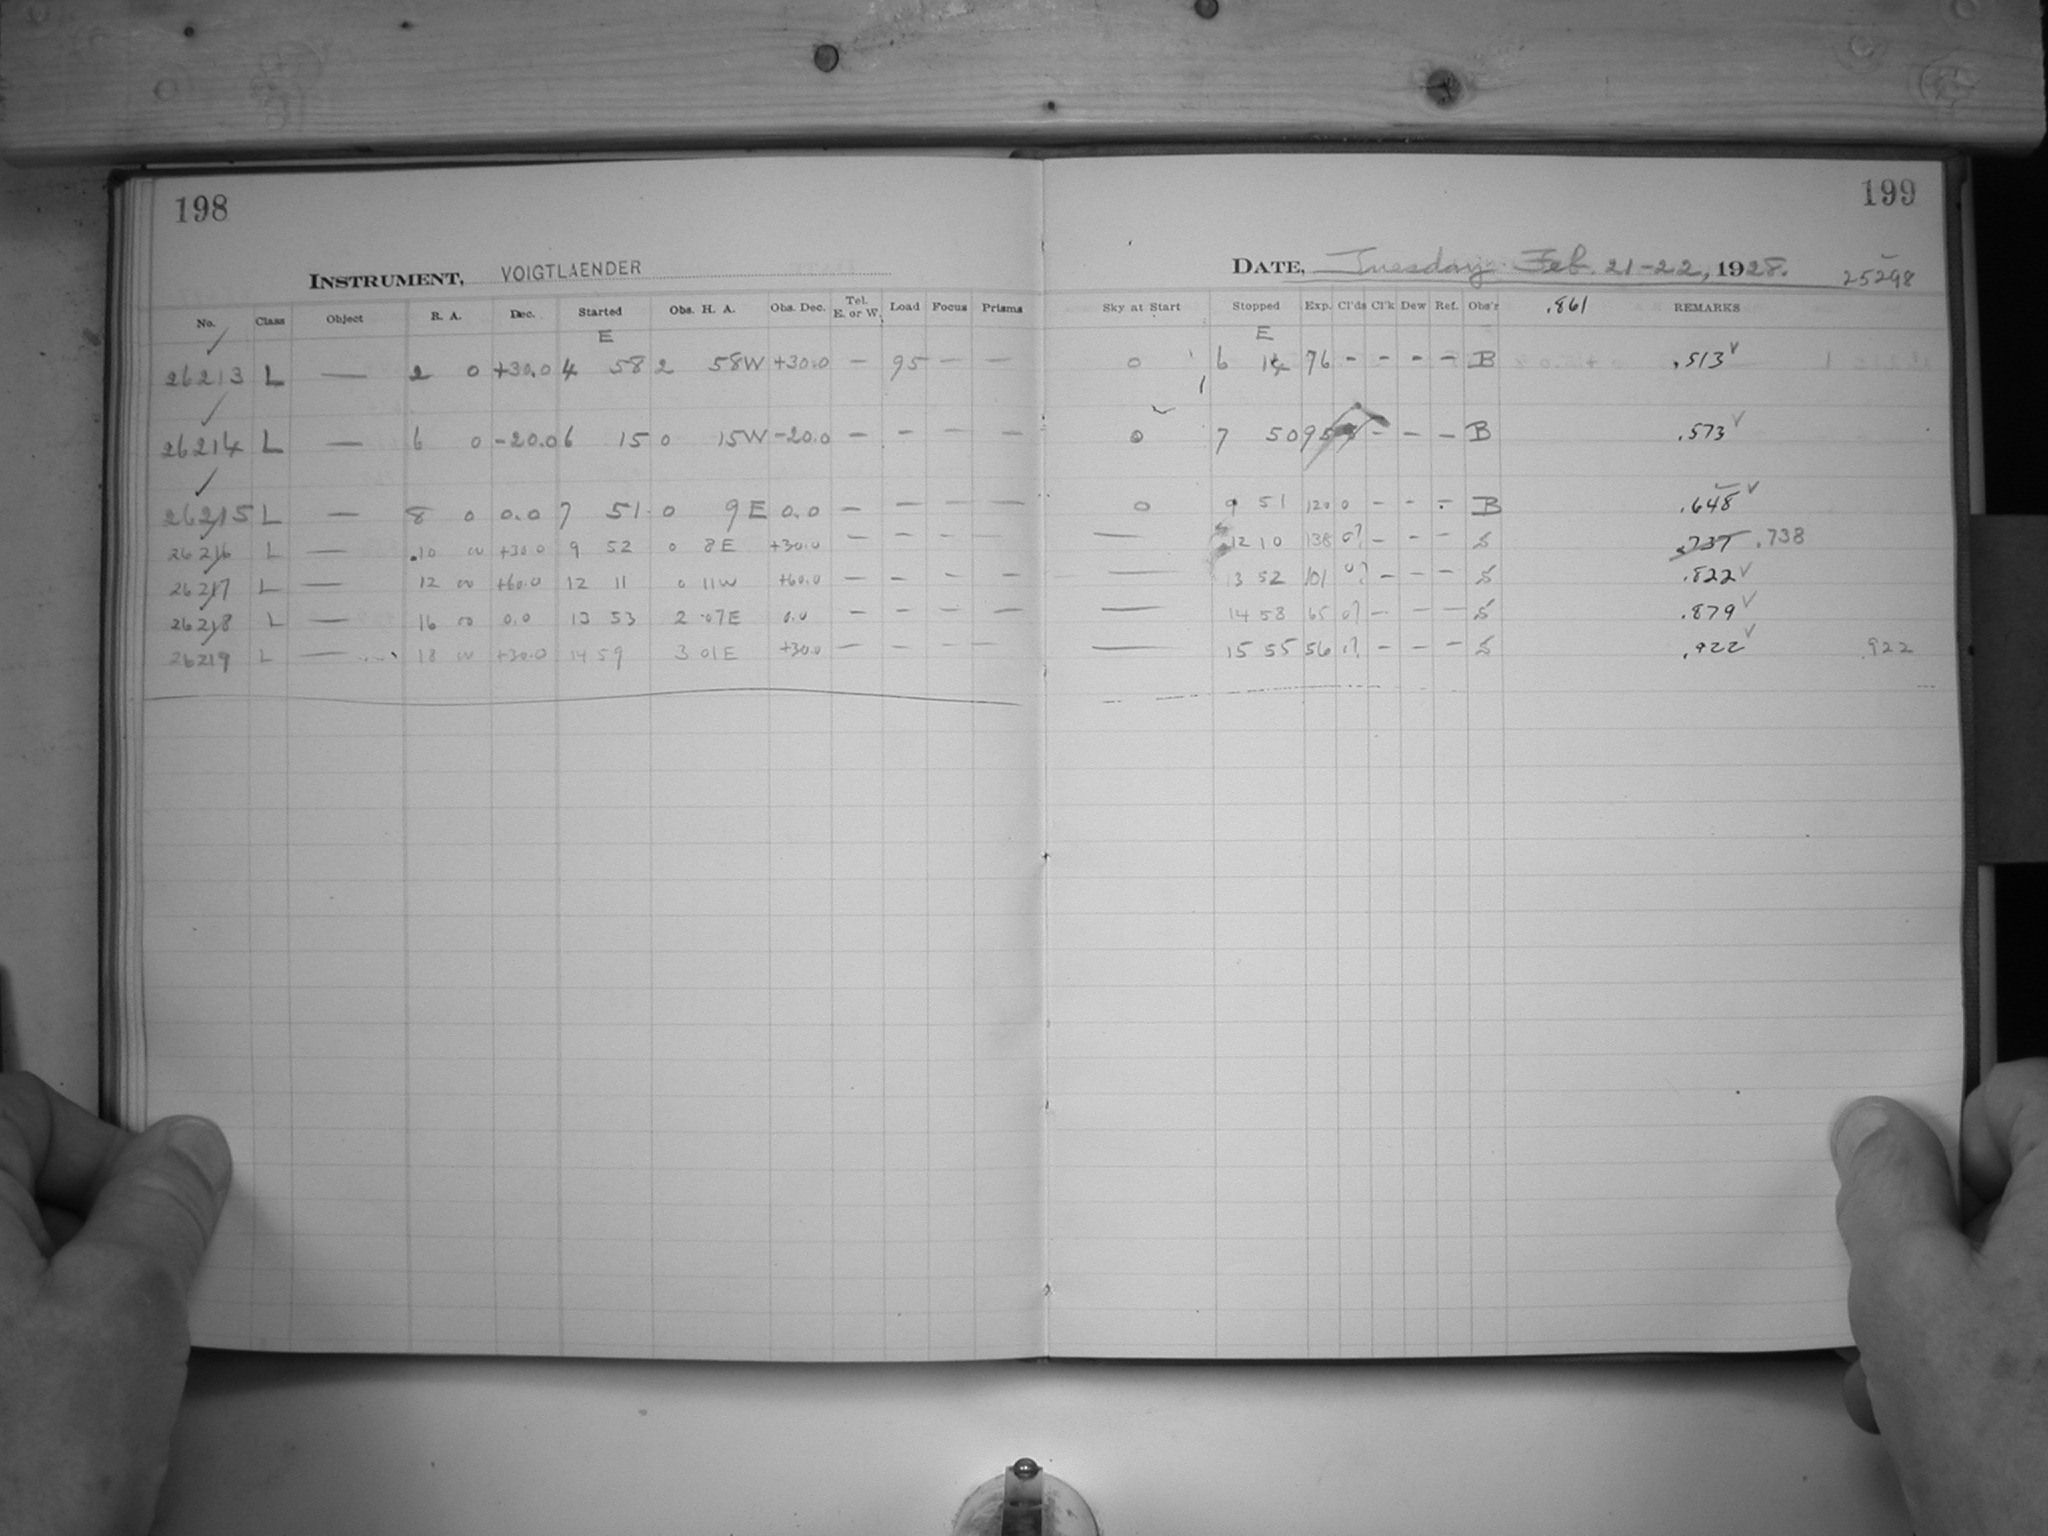 198
INSTRUMENT, VOIGTLAENDER
No. Class Object R. A. Dec. Started Obs. H. A. Obs. Dec. Tel. E. or W. Load Focus Prisms
E
26213 L — 2 0 +30.0 4 58 2 58W +30.0 — 95 — —
26214 L — 6 0 -20.0 6 15 0 15W -20.0 — — — —
26215 L — 8 0 0.0 7 51 0 9E 0.0 — — — —
26216 L — 10 00 +30.0 9 52 0 8E +30.0 — — — —
26217 L — 12 00 +60.0 12 11 0 11W +60.0 — — — —
26218 L — 16 00 0.0 13 53 2 07E 0.0 — — — —
26219 L — 18 00 +30.0 14 59 3 01E +30.0 — — — —
199
DATE, Tuesday Feb. 21-22, 1928. 25298
Sky at Start Stopped Exp. Cl'ds Cl'k Dew Ref. Obs'r .861 REMARKS
E
0 6 14 76 - - - - B .513
0 7 50 95 - - - B .573
0 9 51 120 0 - - - B .648
— 12 10 138 0? - - - S .737 .738
— 13 52 101 0? - - - S .822
— 14 58 65 0? - - - S .879
— 15 55 56 - - - S .922 922